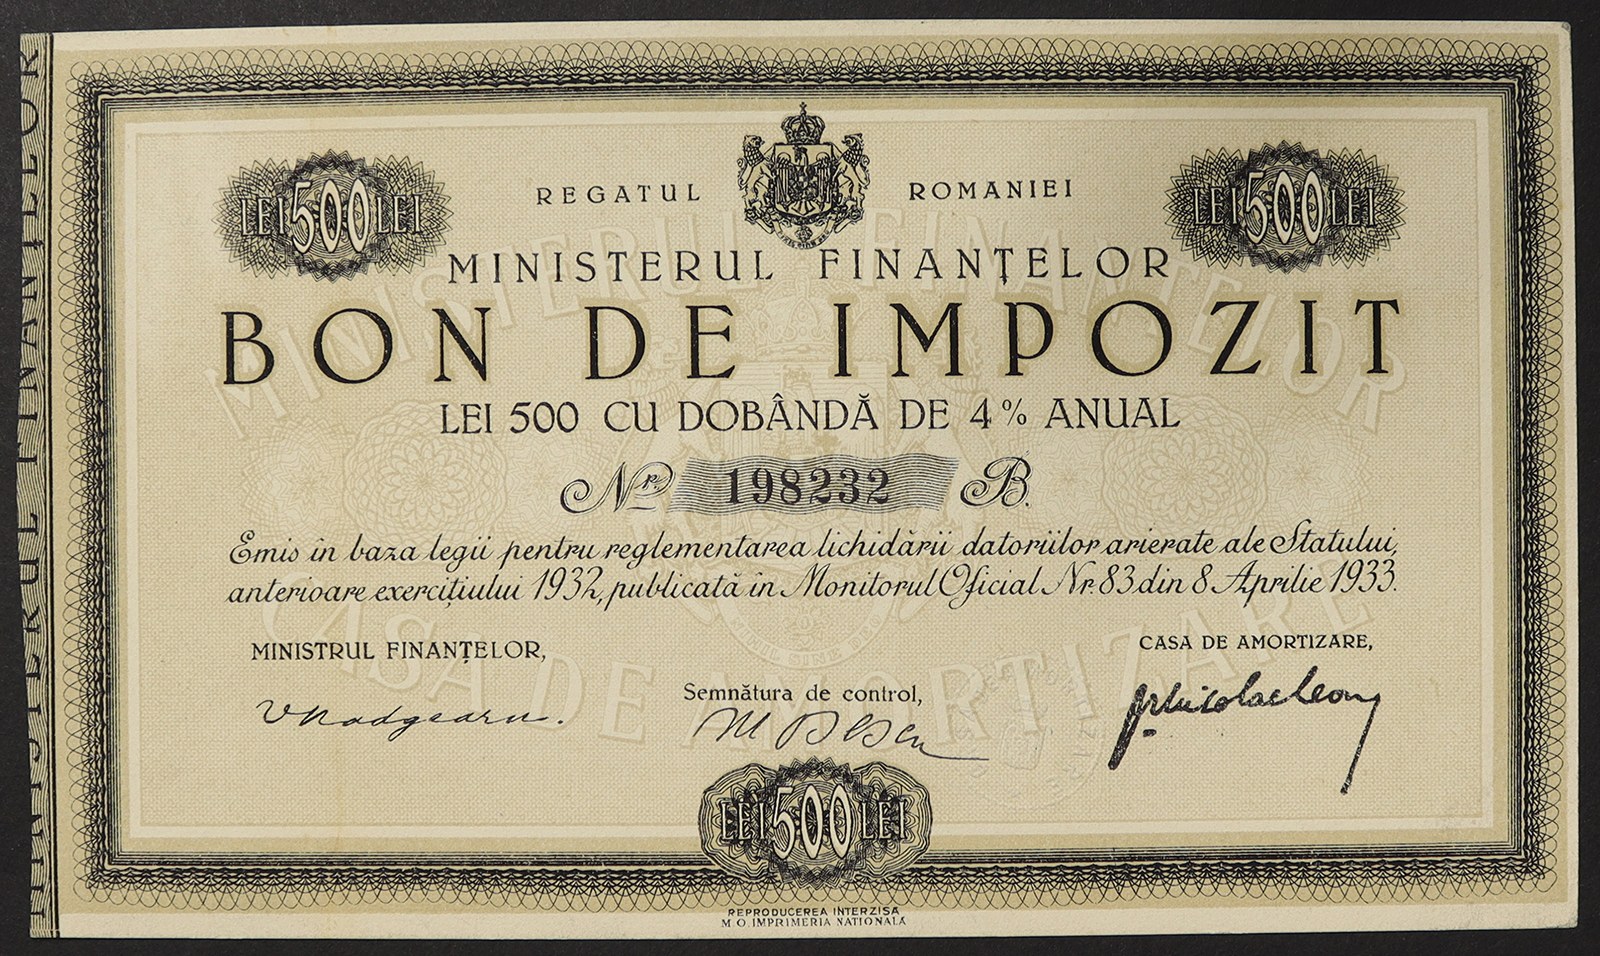 MINISTERUL FINANȚELOR
REGATUL ROMANIEI
LEI 500 LEI
LEI 500 LEI
MINISTERUL FINANȚELOR
BON DE IMPOZIT
LEI 500 CU DOBÂNDĂ DE 4% ANUAL
Nr. 198232 B.
Emis în baza legii pentru reglementarea lichidării datoriilor arierate ale Statului,
anterioare exercițiului 1932, publicată în Monitorul Oficial Nr. 83 din 8 Aprilie 1933.
MINISTERUL FINANTELOR
CASA DE AMORTIZARE
MINISTRUL FINANȚELOR,
CASA DE AMORTIZARE,
Semnătura de control,
LEI 500 LEI
REPRODUCEREA INTERZISĂ
M. O. IMPRIMERIA NAȚIONALĂ